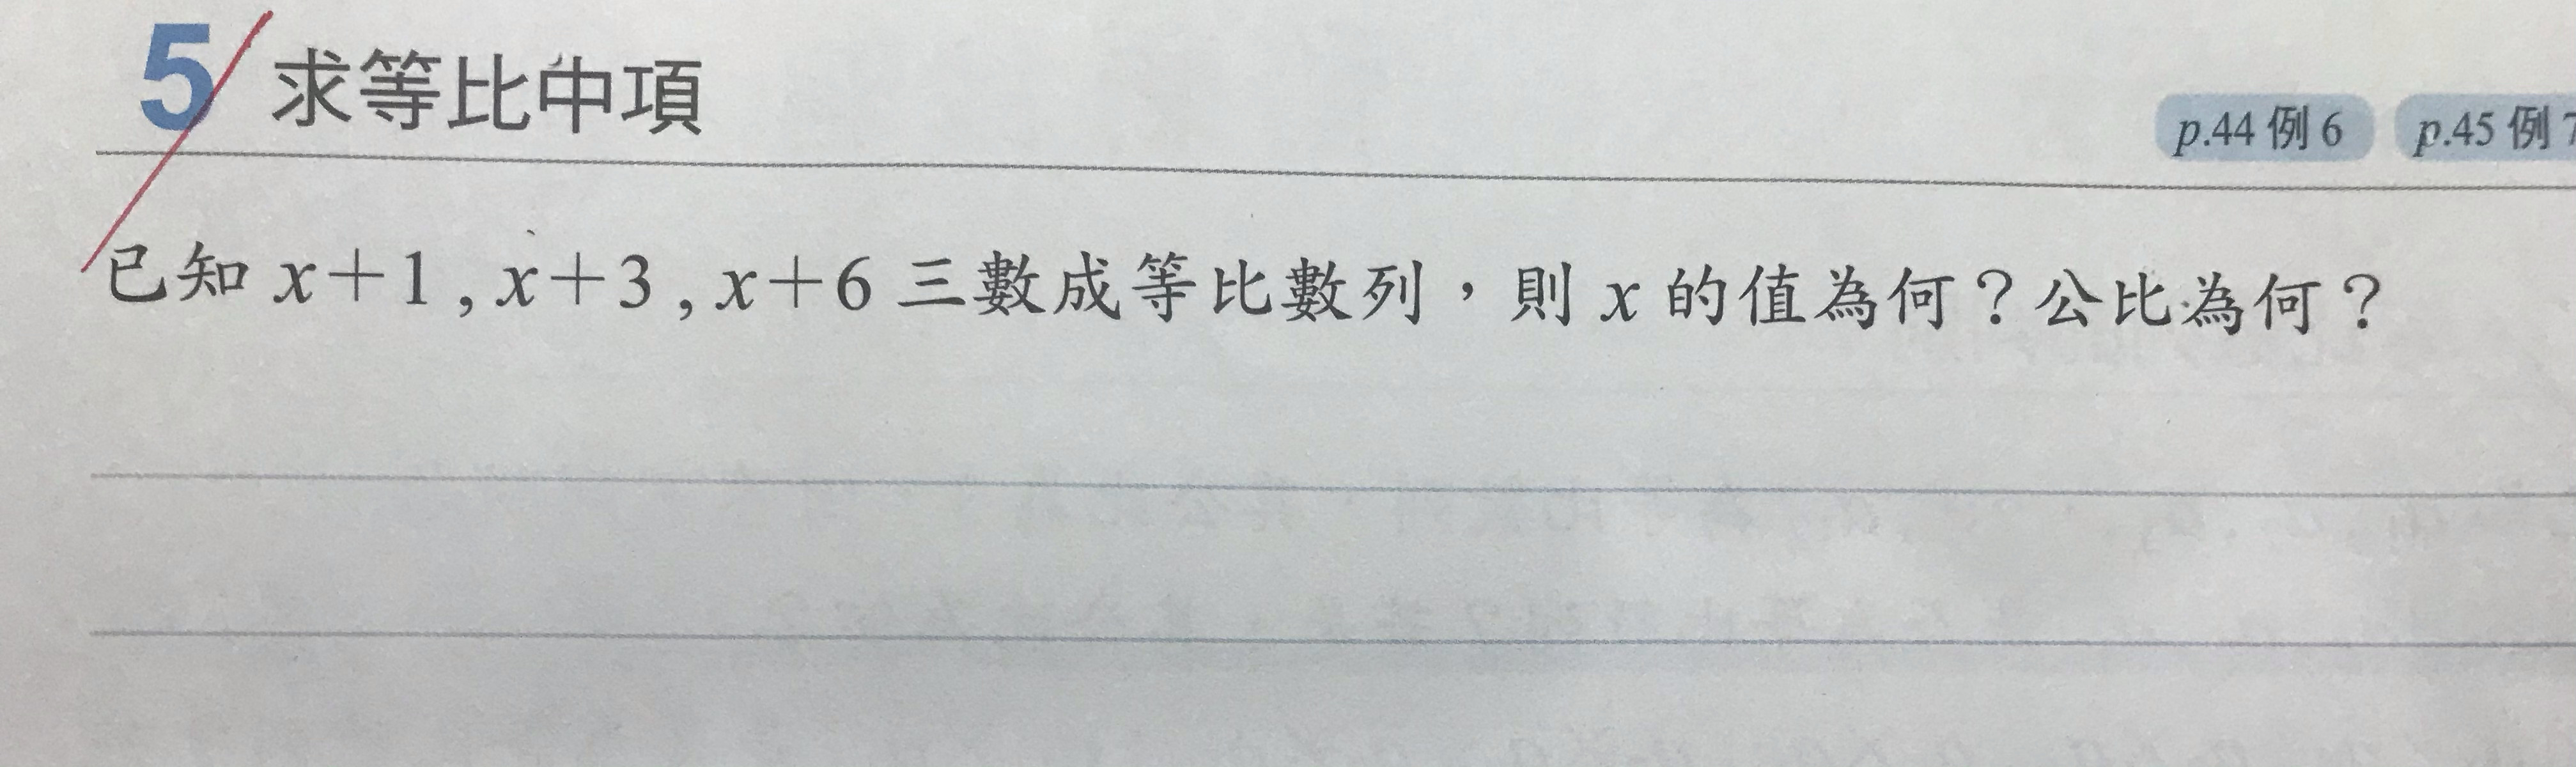 5 求等比中項
p.44 例 6 p.45 例 7
已知 x+1 , x+3 , x+6 三數成等比數列，則 x 的值為何？公比為何？